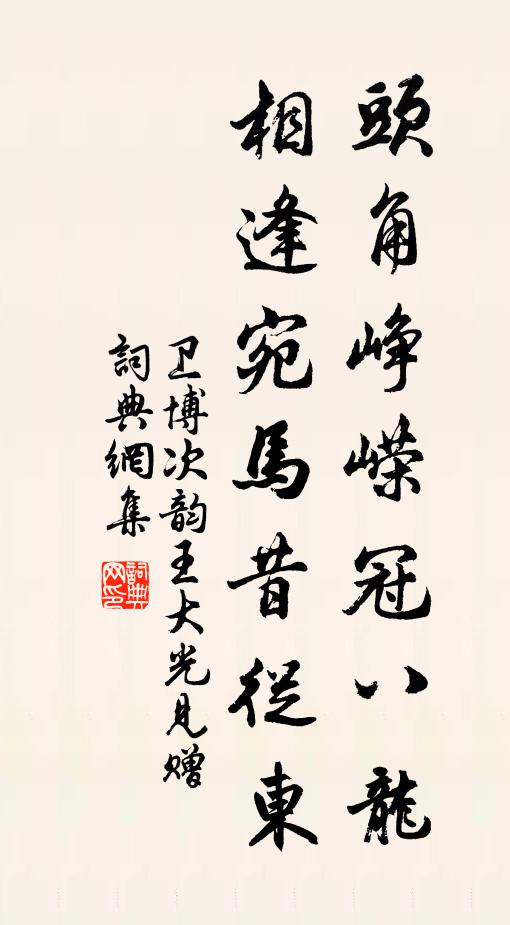 頭角崢嶸冠八龍
相逢宛馬昔從東
卫博次韵王大光見赠
詞典網集
詞典网印